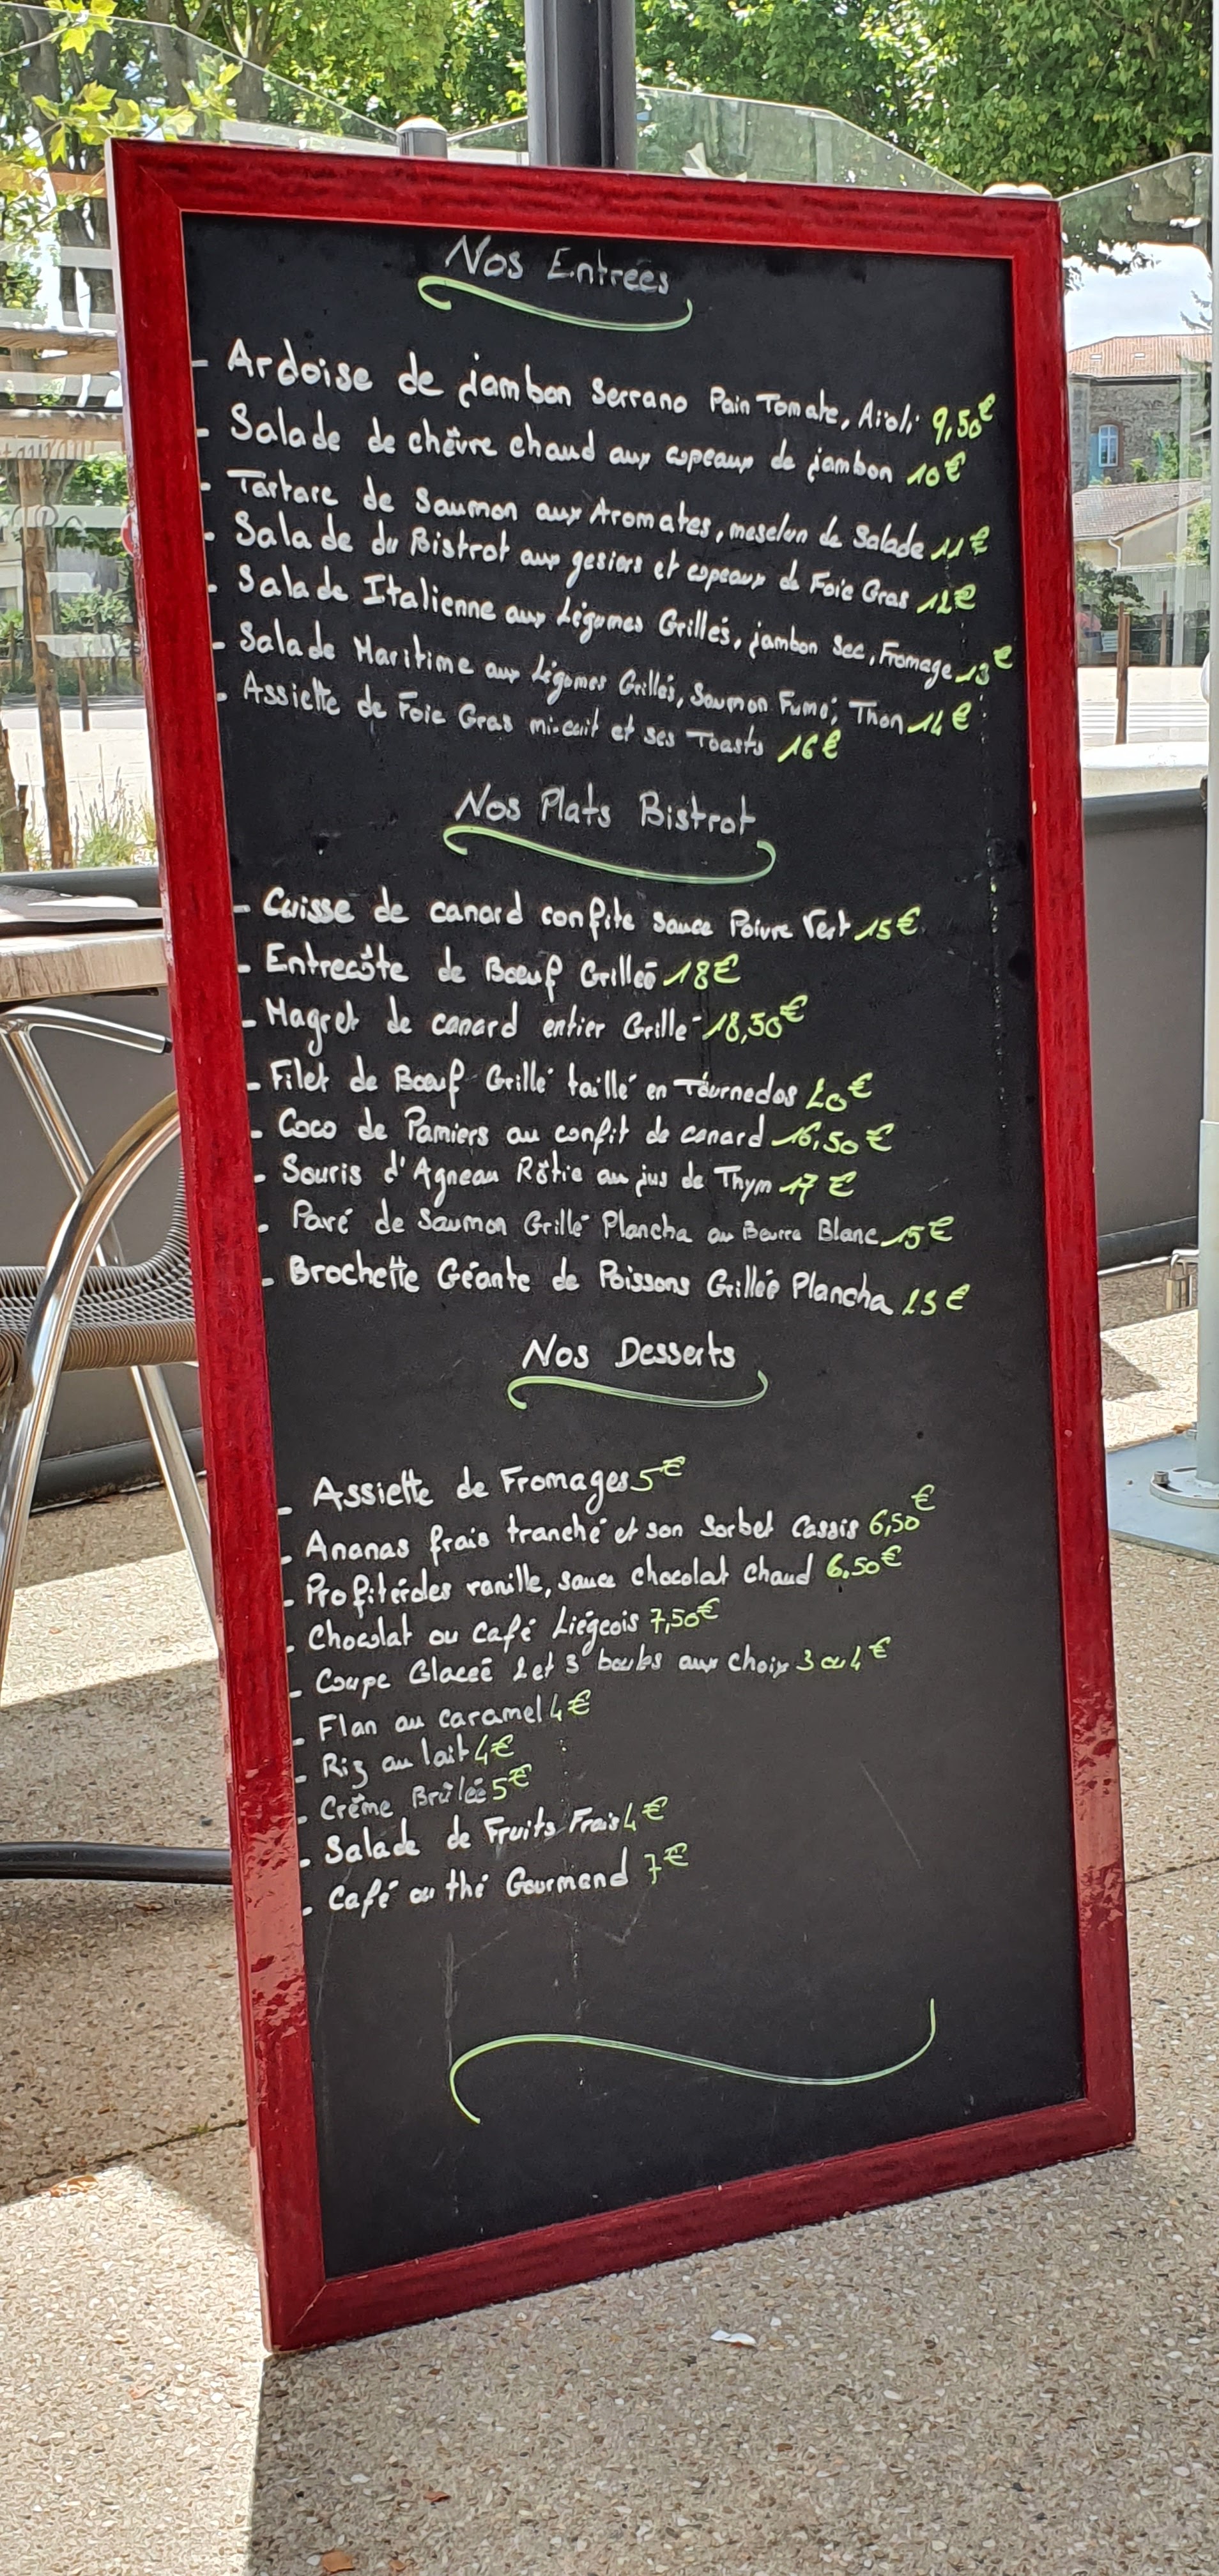 Nos Entrées
- Ardoise de jambon Serrano Pain Tomate, Aïoli 9,50€
- Salade de chèvre chaud aux copeaux de jambon 10€
- Tartare de Saumon aux Aromates, mesclun de Salade 11€
- Salade du Bistrot aux gesiers et copeaux de Foie Gras 12€
- Salade Italienne aux Légumes Grillés, jambon Sec, Fromage 13€
- Salade Maritime aux Légumes Grillés, Saumon Fumé, Thon 14€
- Assiette de Foie Gras mi-cuit et ses Toasts 16€
Nos Plats Bistrot
- Cuisse de canard confite sauce Poivre Vert 15€
- Entrecôte de Boeuf Grilleé 18€
- Magret de canard entier Grillé 18,50€
- Filet de Boeuf Grillé taillé en Tournedos 20€
- Coco de Pamiers au confit de canard 16,50€
- Souris d'Agneau Rôtie au jus de Thym 17€
- Pavé de Saumon Grillé Plancha au Beurre Blanc 15€
- Brochette Géante de Poissons Grillée Plancha €
Nos Desserts
- Assiette de Fromages 5€
- Ananas frais tranché et son Sorbet Cassis 6,50€
- Profiteroles vanille, sauce chocolat chaud 6,50€
- Chocolat ou Café Liégeois 7,50€
- Coupe Glaceé 2 et 3 boules aux choix 3 ou 4€
- Flan au caramel 4€
- Riz au lait 4€
- Crème Brûlée 5€
- Salade de Fruits Frais 4€
- Café ou thé Gourmand 7€